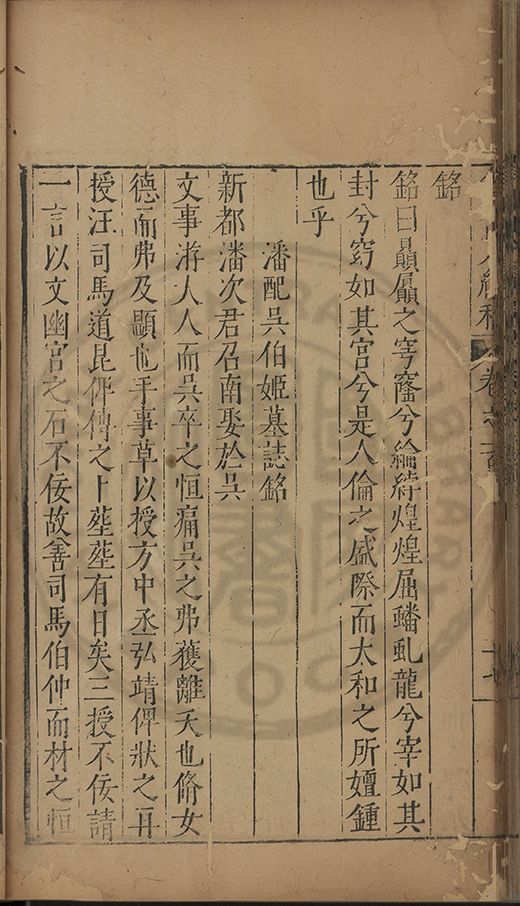 人續稿 卷之一百
十七
銘
銘曰贔屭之穹窿兮綸綍煌煌屈蟠虬龍兮宰如其
封兮窈如其宮兮是人倫之盛際而太和之所嬗鍾
也乎
潘配吳伯姬墓誌銘
新都潘次君召南娶於吳
文事游人人而吳卒之恒痛吳之弗獲離夭也脩女
德而弗及顯也手事草以授方中丞弘靖俾狀之再
授汪司馬道昆俾傳之卜塟塟有日矣三授不佞請
一言以文幽宮之石不佞故善司馬伯仲而材之恒